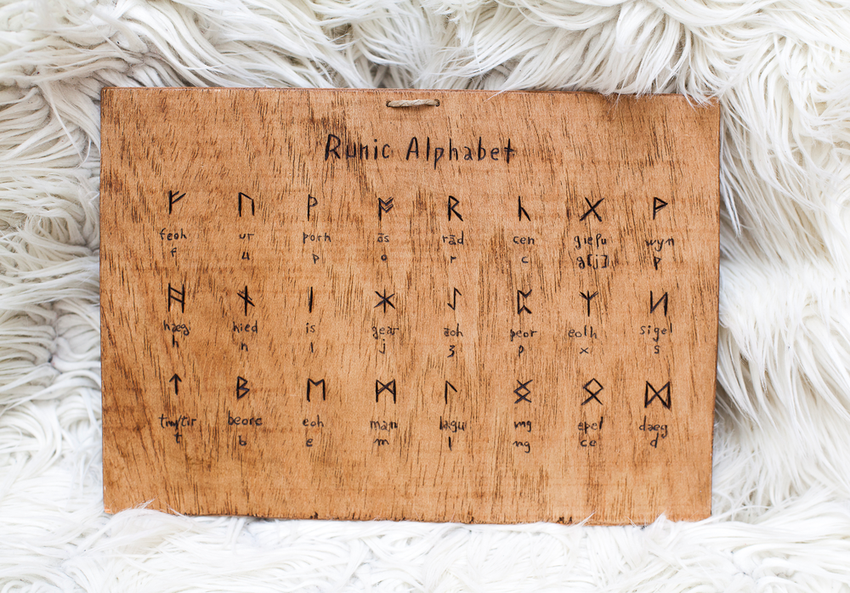 Runic Alphabet
ᚠ ᚢ ᚦ ᚩ ᚱ ᚳ ᚷ ᚹ
feoh ur þorh ās rād cen giefu wyn
f u þ o r c g[j] p
ᚻ ᚾ ᛁ ᛡ ᛇ ᛈ ᛉ ᛋ
hæg nied is gear eoh peor eolh sigel
h n i j ʒ p x s
ᛏ ᛒ ᛖ ᛗ ᛚ ᛝ ᛟ ᛞ
beorc eoh man lagu ing eþel daeg
t b e m l ng œ d